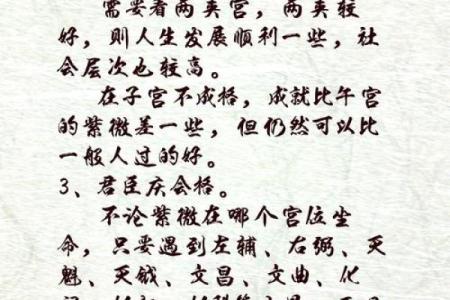 需要看两夹宫，两夹较
好，则人生发展顺利一些，社
会层次也较高。
在子宫不成格，成就比午宫
的紫微差一些，但仍然可以比
一般人过的好。
3、君臣庆会格。
不论紫微在哪个宫位坐
命，只要遇到左辅、右弼、天
魁、天钺、文昌、文曲、化